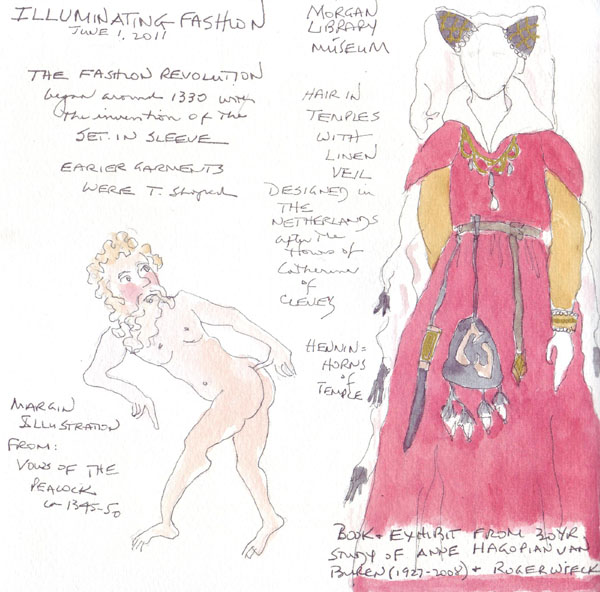 ILLUMINATING FASHION
JUNE 1, 2011
THE FASHION REVOLUTION
began around 1330 with
the invention of the
SET-IN SLEEVE
EARIER GARMENTS
WERE T. Shaped
MORGAN
LIBRARY
MUSEUM
HAIR IN
TEMPLES
WITH
LINEN
VEIL
DESIGNED in
THE
NETHERLANDS
after the
Hours of
Catherine
of
CLEVES
HENNIN =
HORNS
of
TEMPLE
MARGIN
ILLUSTRATION
FROM:
VOWS OF THE
PEACOCK
ca 1345-50
BOOK + EXHIBIT FROM 30 YR.
STUDY OF ANNE HAGOPIAN VAN
BUREN (1927-2008) + ROGER WIECK